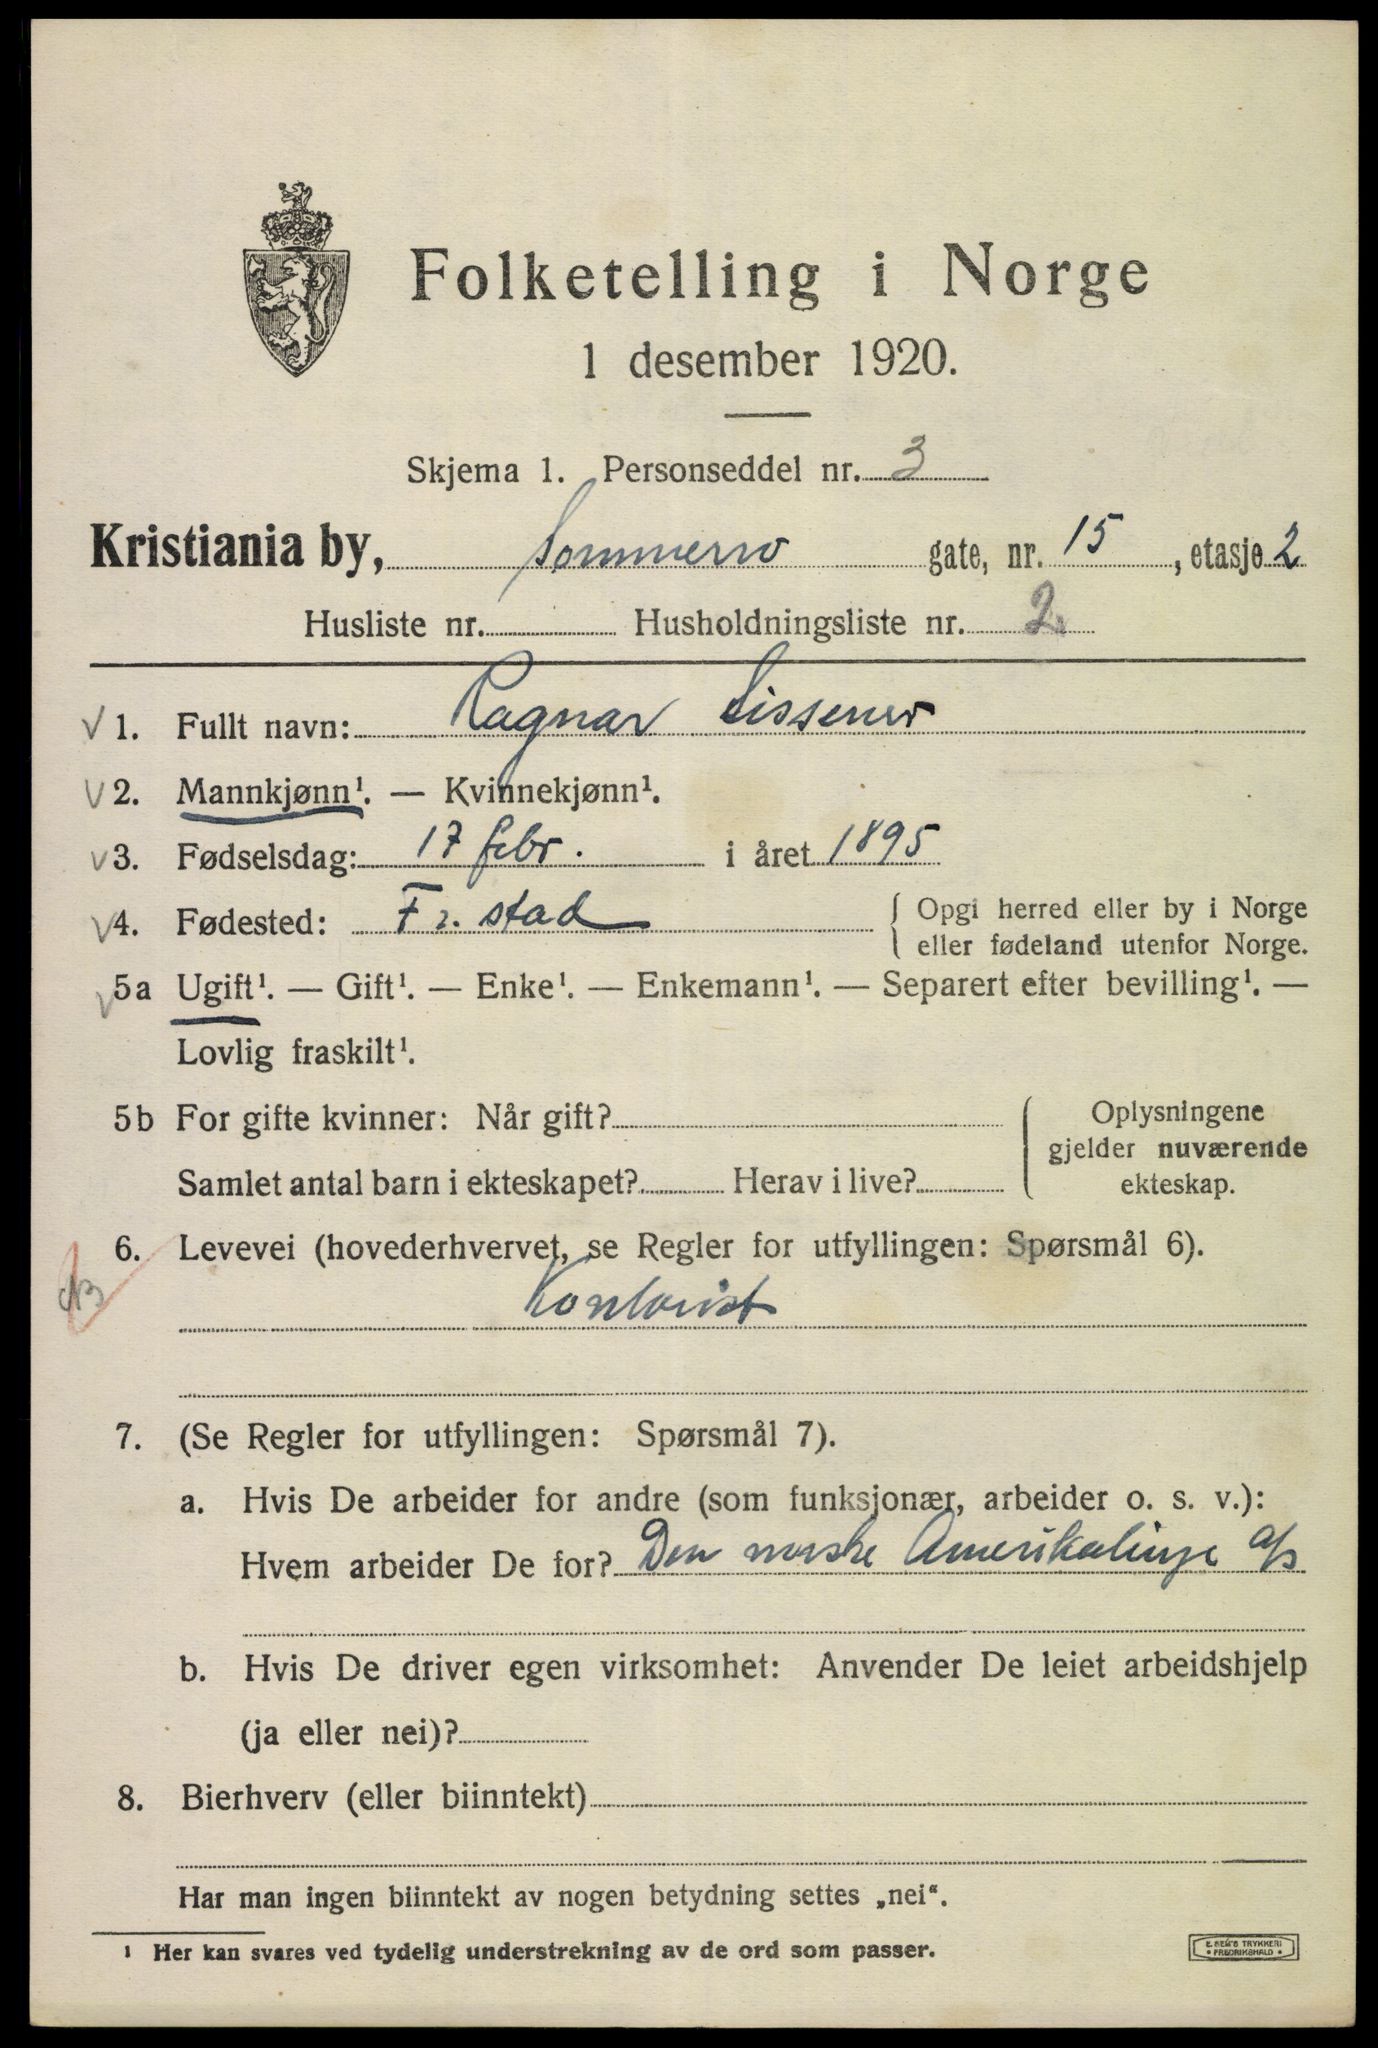 Folketelling i Norge
1 desember 1920.
Skjema 1. Personseddel nr. 3
Kristiania by, Sommerro gate, nr. 15, etasje 2
Husliste nr. Husholdningsliste nr. 2.
1. Fullt navn: Ragnar Lissener
2. Mannkjønn¹. — Kvinnekjønn¹.
3. Fødselsdag: 17 febr. i året 1895
4. Fødested: Fr. stad { Opgi herred eller by i Norge
eller fødeland utenfor Norge.
5a Ugift¹. — Gift¹. — Enke¹. — Enkemann¹. — Separert efter bevilling¹. —
Lovlig fraskilt¹.
5b For gifte kvinner: Når gift? Oplysningene
gjelder nuværende
Samlet antal barn i ekteskapet? Herav i live? ekteskap.
6. Levevei (hovederhvervet, se Regler for utfyllingen: Spørsmål 6).
Kontorist
7. (Se Regler for utfyllingen: Spørsmål 7).
a. Hvis De arbeider for andre (som funksjonær, arbeider o. s. v.):
Hvem arbeider De for? Den norske Amerikalinje a/s
b. Hvis De driver egen virksomhet: Anvender De leiet arbeidshjelp
(ja eller nei)?
8. Bierhverv (eller biinntekt)
Har man ingen biinntekt av nogen betydning settes „nei“.
¹ Her kan svares ved tydelig understrekning av de ord som passer.
E. SEM'S TRYKKERI
• FREDRIKSHALD •